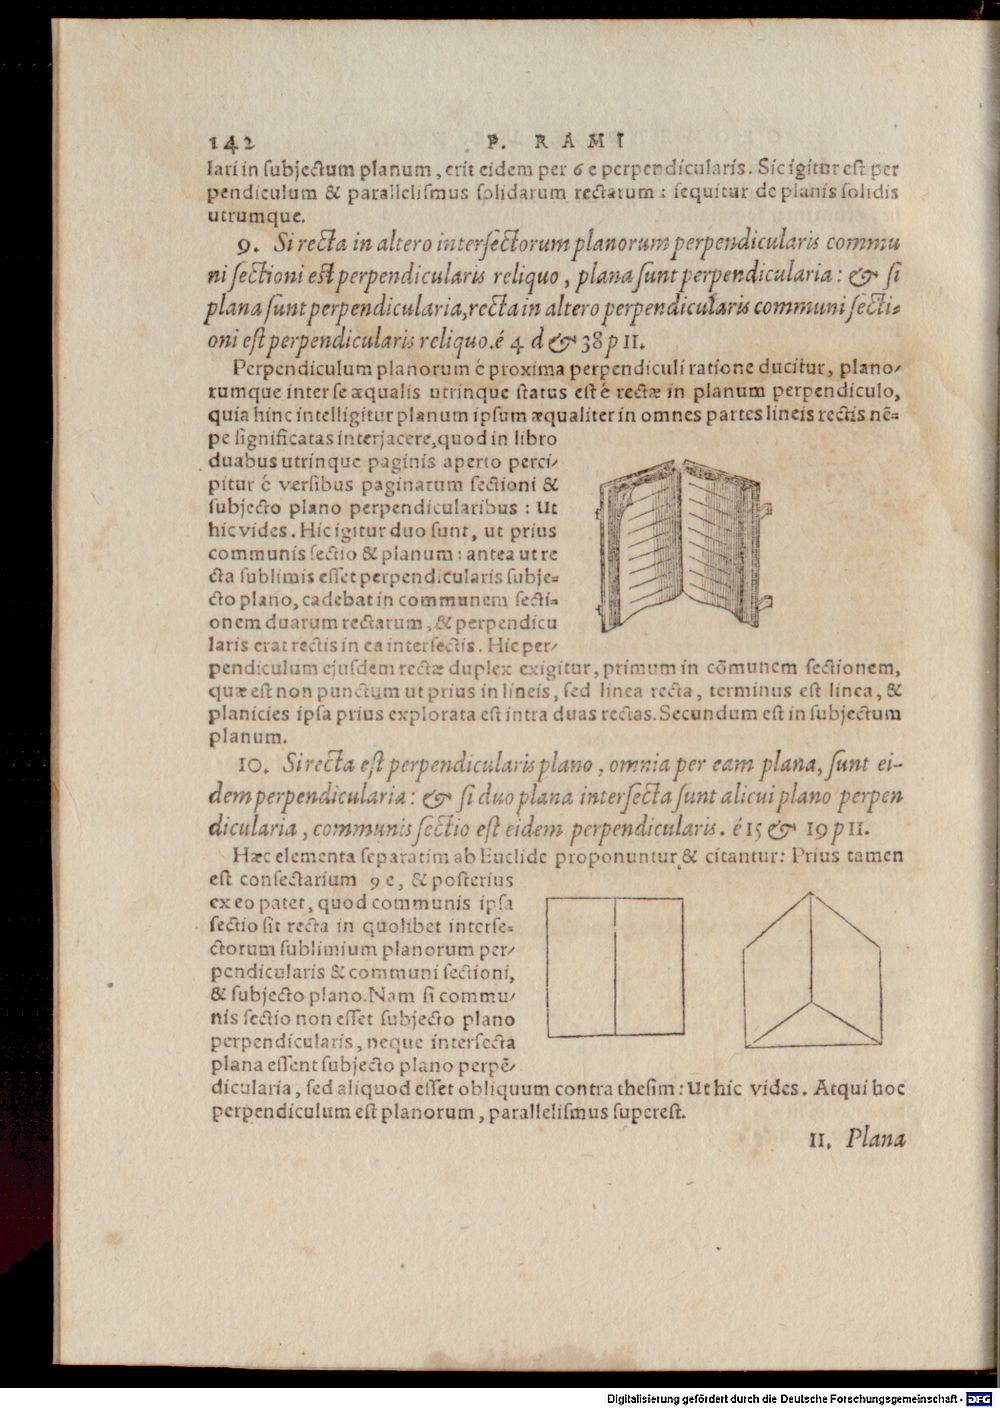 142 P. RAMI
lari in subjectum planum, erit eidem per 6 e perpendicularis. Sic igitur est per
pendiculum & parallelismus solidarum rectarum: sequitur de planis solidis
utrumque.
9. Si recta in altero intersectorum planorum perpendicularis commu
ni sectioni est perpendicularis reliquo, plana sunt perpendicularia: & si
plana sunt perpendicularia, recta in altero perpendicularis communi secti-
oni est perpendicularis reliquo. é 4 d & 38 p 11.
Perpendiculum planorum é proxima perpendiculi ratione ducitur, plano-
rumque inter se æqualis utrinque status est é rectæ in planum perpendiculo,
quia hinc intelligitur planum ipsum æqualiter in omnes partes lineis rectis nē-
pe significatas interjacere, quod in libro
duabus utrinque paginis aperto perci-
pitur é versibus paginarum sectioni &
subjecto plano perpendicularibus: Ut
hic vides. Hic igitur duo sunt, ut prius
communis sectio & planum: antea ut re
cta sublimis esset perpendicularis subje-
cto plano, cadebat in communem secti-
onem duarum rectarum, & perpendicu
laris erat rectis in ea intersectis. Hic per-
pendiculum ejusdem rectæ duplex exigitur, primum in cōmunem sectionem,
quæ est non punctum ut prius in lineis, sed linea recta, terminus est linea, &
planicies ipsa prius explorata est intra duas rectas. Secundum est in subjectum
planum.
10. Si recta est perpendicularis plano, omnia per eam plana, sunt ei-
dem perpendicularia: & si duo plana intersecta sunt alicui plano perpen
dicularia, communis sectio est eidem perpendicularis. é 15 & 19 p 11.
Hæc elementa separatim ab Euclide proponuntur & citantur: Prius tamen
est consectarium 9 e, & posterius
ex eo patet, quod communis ipsa
sectio sit recta in quolibet interse-
ctorum sublimium planorum per-
pendicularis & communi sectioni,
& subjecto plano. Nam si commu-
nis sectio non esset subjecto plano
perpendicularis, neque intersecta
plana essent subjecto plano perpē-
dicularia, sed aliquod esset obliquum contra thesim: Ut hic vides. Atqui hoc
perpendiculum est planorum, parallelismus superest.
11. Plana
Digitalisierung gefördert durch die Deutsche Forschungsgemeinschaft - DFG